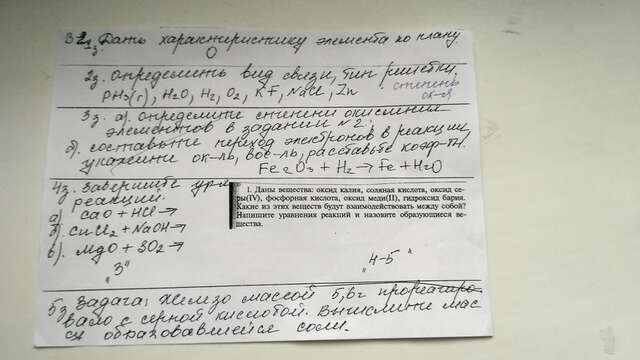 В2 1з. Дать характеристику элемента по плану.
О
2з. Определить вид связи, тип решётки.
PH3(г), H2O, H2, O2, KF, NaCl, Zn
степень
ок-я
3з. а). Определите степени окисления
элементов в задании №2.
б). составьте переход электронов в реакции,
укажите ок-ль, вос-ль, расставьте коэф-ты.
Fe2O3 + H2 → Fe + H2O
4з. Завершите ур-я
реакций.
а) CaO + HCl →
б) CuCl2 + NaOH →
в). MgO + SO2 →
„3"
1. Даны вещества: оксид калия, соляная кислота, оксид се-
ры(IV), фосфорная кислота, оксид меди(II), гидроксид бария.
Какие из этих веществ будут взаимодействовать между собой?
Напишите уравнения реакций и назовите образующиеся ве-
щества.
„4-5"
5з Задача: Железо массой 5,6г прореагиро-
вало с серной кислотой. Вычислите мас-
су образовавшейся соли.